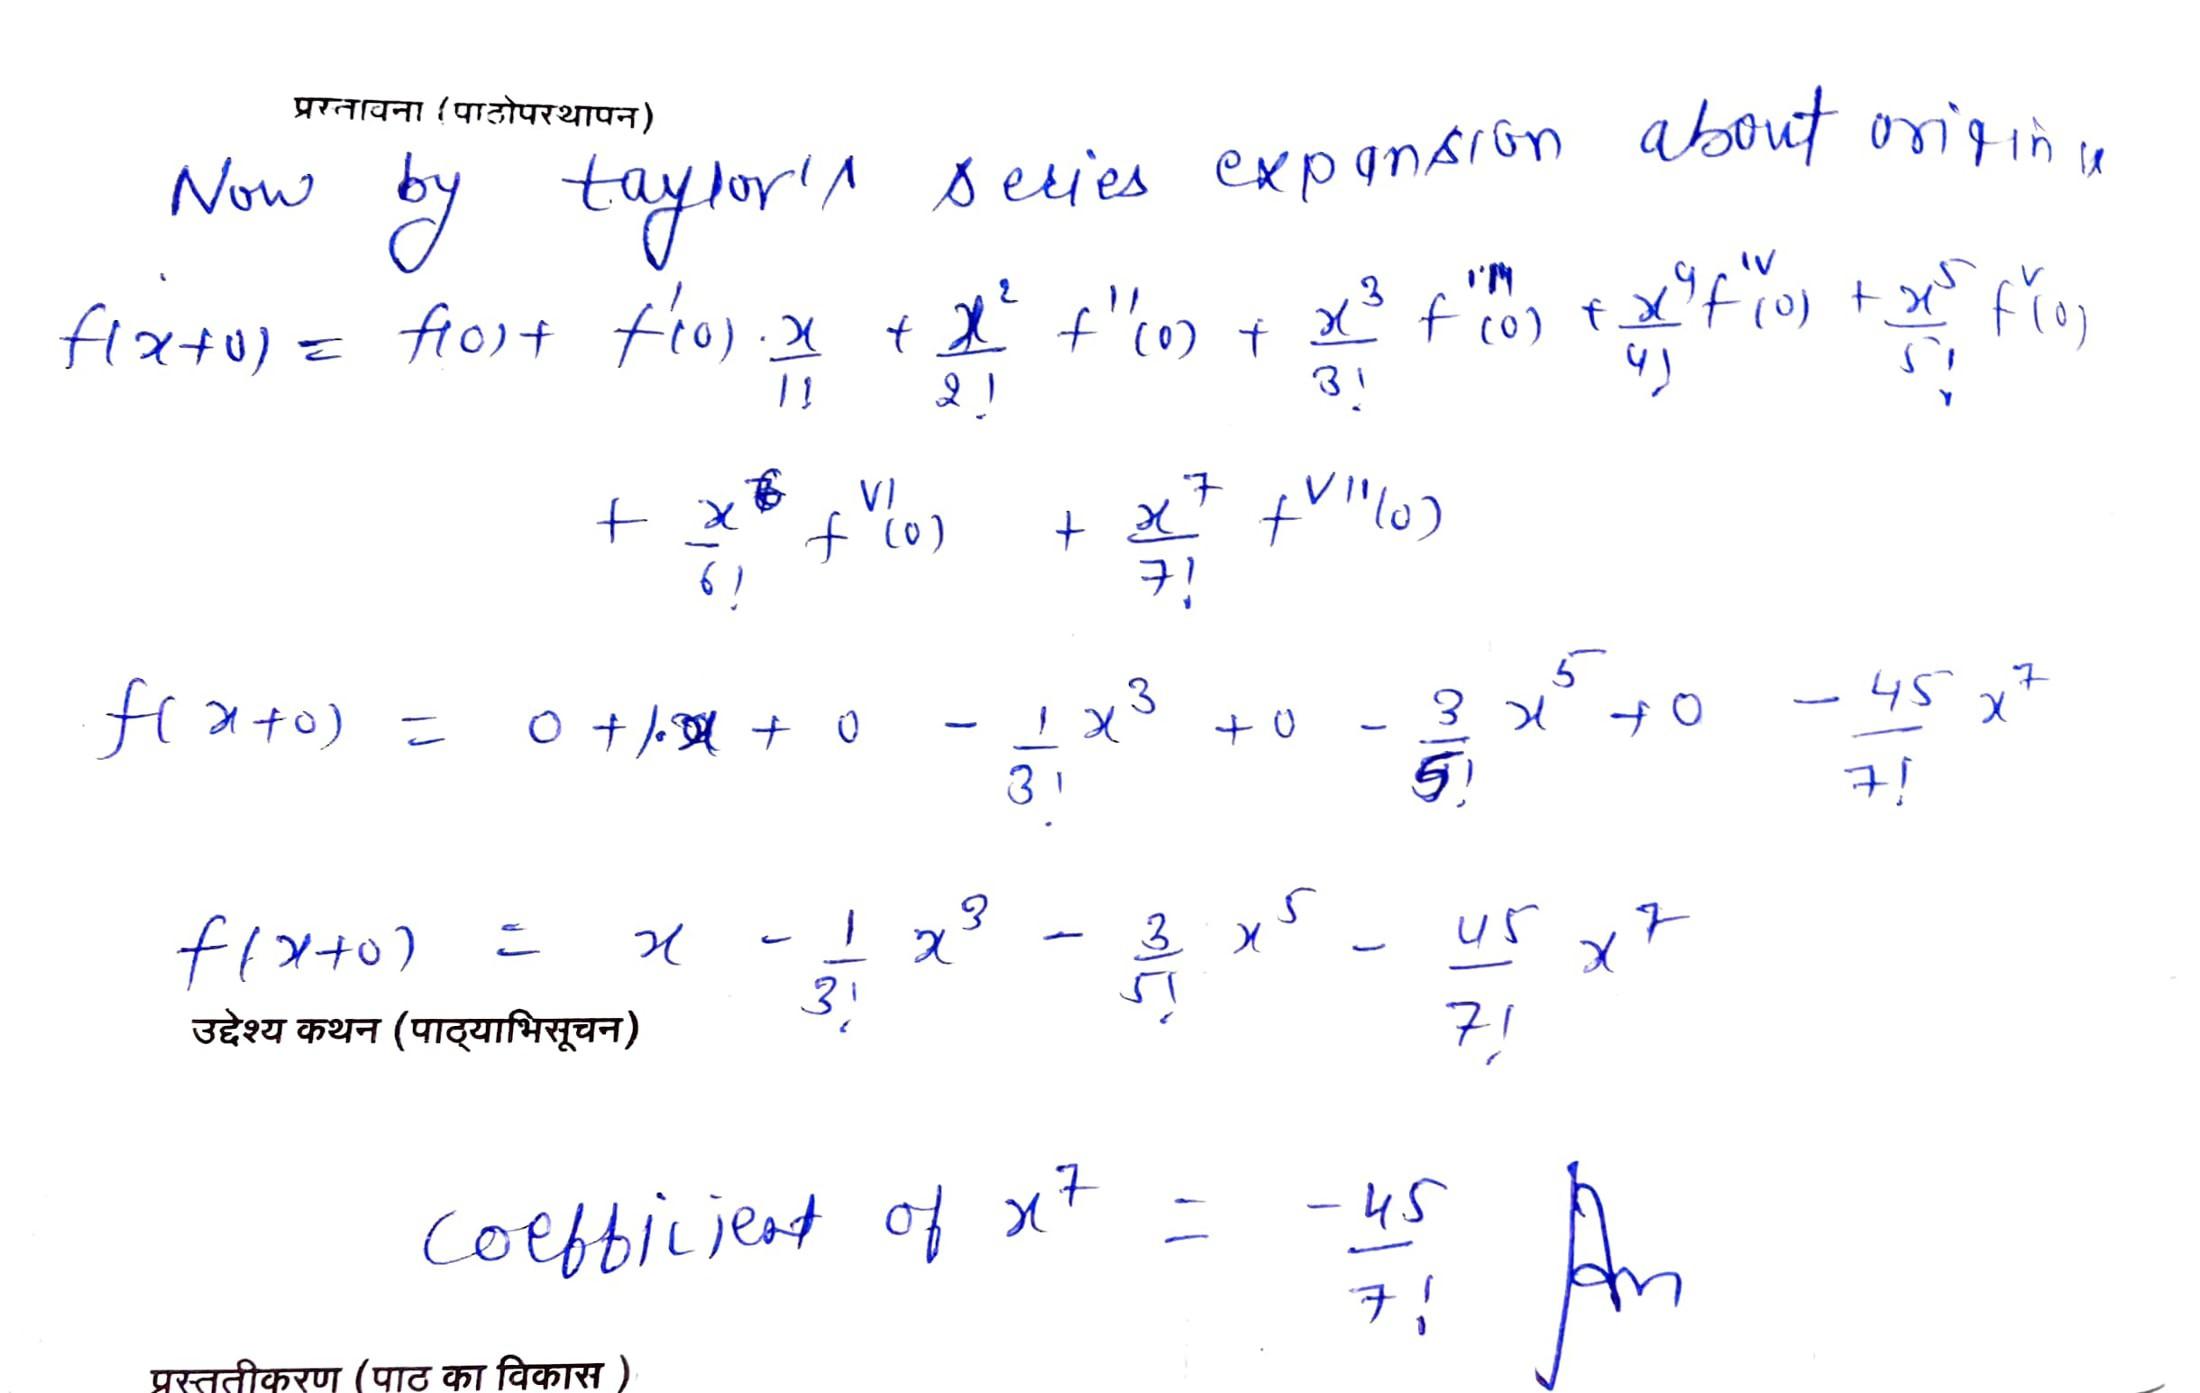 प्रस्तावना (पाठोपस्थापन)
Now by taylor's series expansion about origin is
f(x+0) = f(0) + f'(0).x/1! + x²/2! f''(0) + x³/3! f'''(0) + x⁴/4! f^IV(0) + x⁵/5! f^V(0)
+ x⁶/6! f^VI(0) + x⁷/7! f^VII(0)
f(x+0) = 0 + 1.x + 0 - 1/3! x³ + 0 - 3/5! x⁵ + 0 - 45/7! x⁷
f(x+0) = x - 1/3! x³ - 3/5! x⁵ - 45/7! x⁷
उद्देश्य कथन (पाठ्याभिसूचन)
Coefficient of x⁷ = -45/7! Ans
प्रस्तुतीकरण (पाठ का विकास)